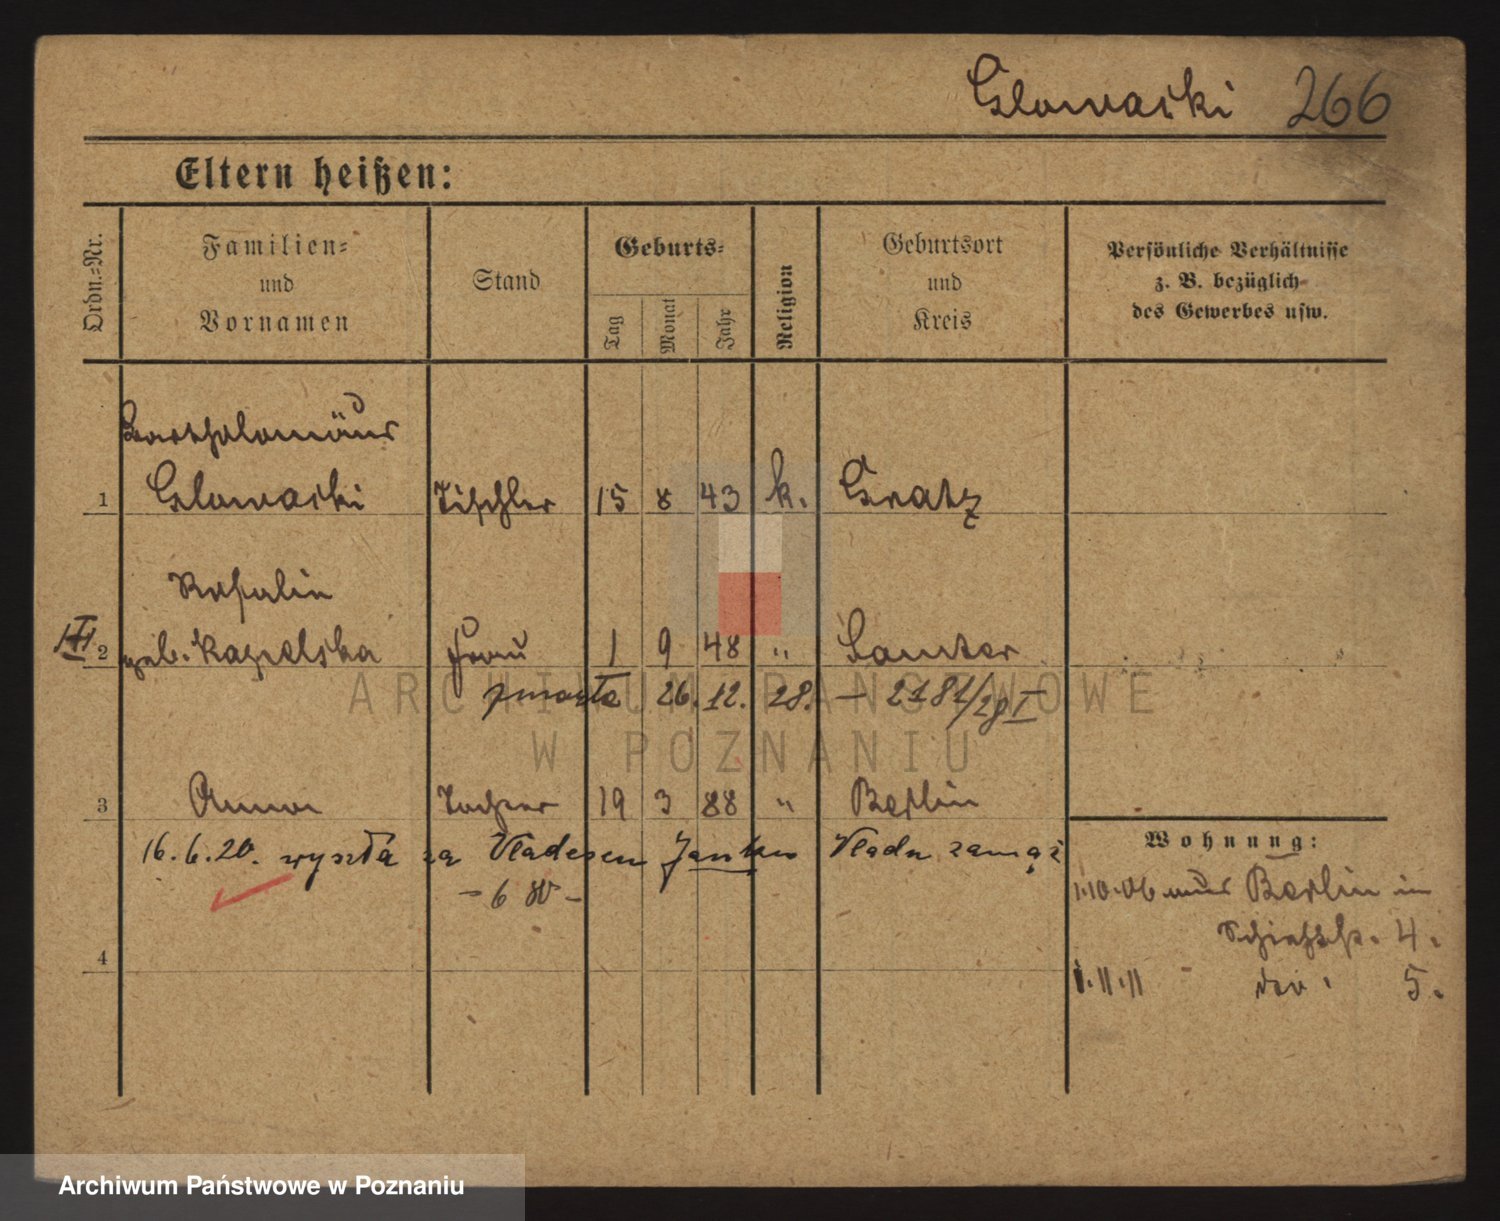 Glowacki 266
Eltern heißen:
Ordn.=Nr.
Familien=
und
Vornamen
Stand
Geburts=
Tag
Monat
Jahr
Religion
Geburtsort
und
Kreis
Persönliche Verhältnisse
z. B. bezüglich
des Gewerbes usw.
Bartholomäus
1 Glowacki Tischler 15 8 43 k. Gratz
Rosalie
III 2 geb. Kapelska Frau 1 9 48 " Samter
zmarła 26. 12. 28. – 2181/28 I
3 Anna Tochter 19 3 88 " Berlin
16.6.20. wyszła za Janke zamąż
- 6 80 -
4
Wohnung:
1.10.06 aus Berlin in
Schießstr. 4.
1.11.11 dto. 5.
ARCHIWUM PAŃSTWOWE
W POZNANIU
Archiwum Państwowe w Poznaniu